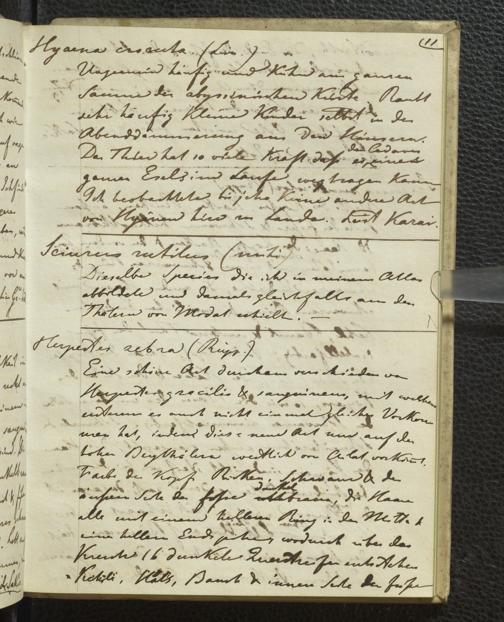 11
Hyaena crocuta (Lin.)
Ungemein häufig und kühn am ganzen
Saume der abyssinischen Küste. Raubt
sehr häufig kleine Kinder selbst in der
Abenddämmerung aus den Häusern.
Das Thier hat so viele Kraft daß es einen
ganzen Esel im Laufe wegtragen kann
Ich beobachtete bis jetzt keine andre Art
von Hyänen hier im Lande. Karai.
Sciurus rutilus (mihi)
Dieselbe Species die ich in meinem Atlas
abbildete und damals gleichfalls aus den
Thälern von Modat erhielt. —
Herpestes zebra (Rüpp.)
Eine schöne Art durchaus verschieden von
Herpestes gracilis & sanguineus, mit welchen
es auch nicht einmal gleiches Vorkom
men hat, indem diese neue Art nur auf den
hohen Bergthälern westlich von vorkömt.
Farbe des Kopfs Rücken, Schwanz & der
äußern Seite der Füße dunkel braun, die Haare
alle mit einem hellen Ring in der Mitte &
eine hellere Endspitze wodurch über das
Kreutz 16 dunkele Querstreifen entstehen
Kehle, Hals, Bauch & innere Seite der Füße